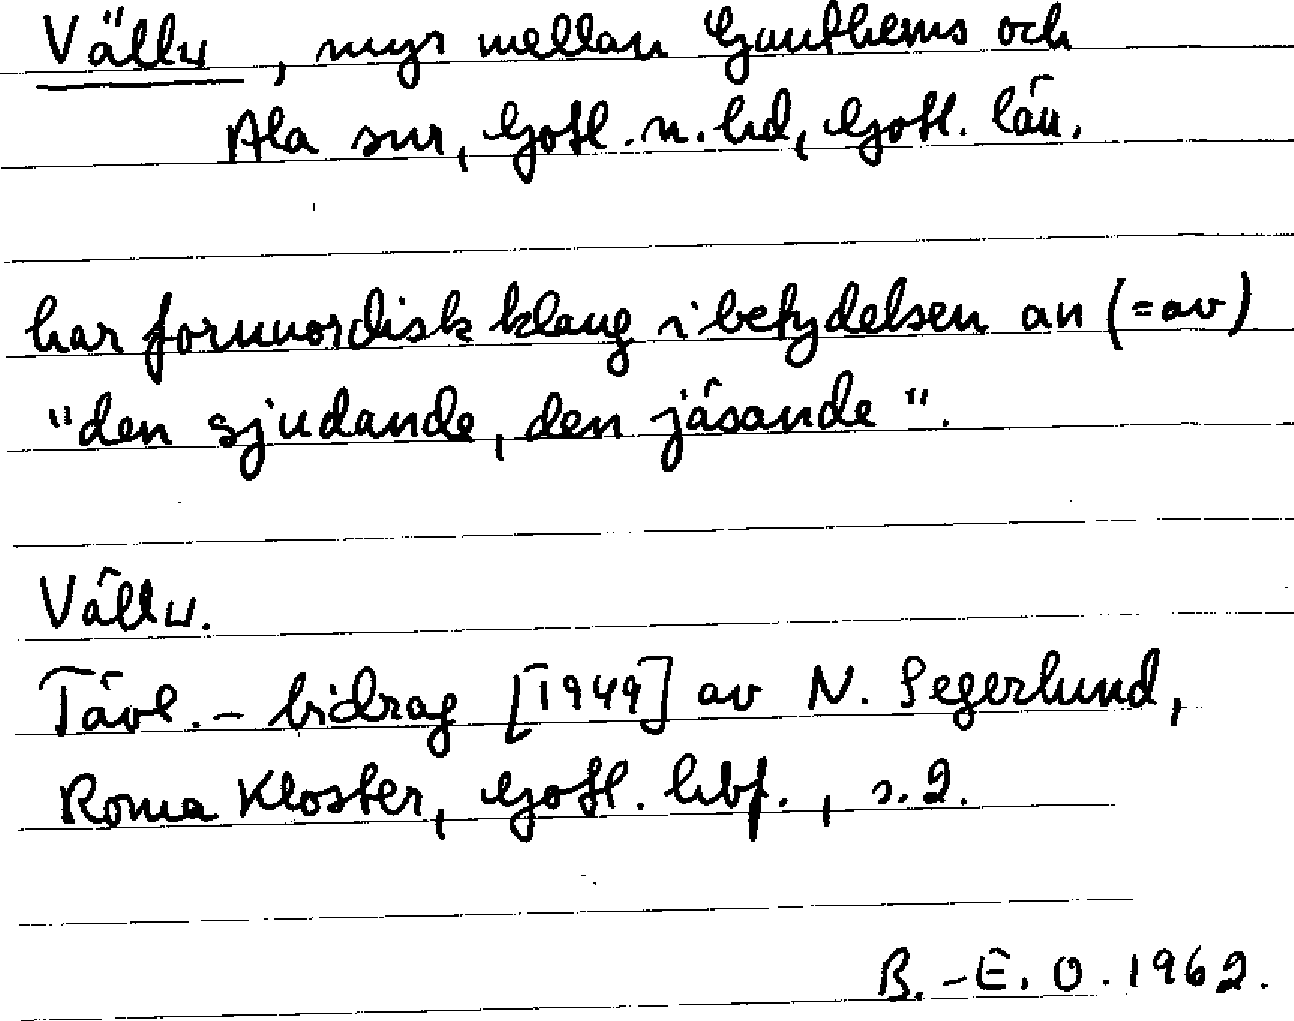 Vällu, myr mellan Ganthems och
Ala snr, Gotl. n. hd, Gotl. län.
har fornnordisk klang i betydelsen an (=av)
"den sjudande, den jäsande".
Vällu.
Tävl.- bidrag [1949] av N. Segerlund,
Roma Kloster, Gotl. hbf., s. 2.
B.-E. O. 1962.